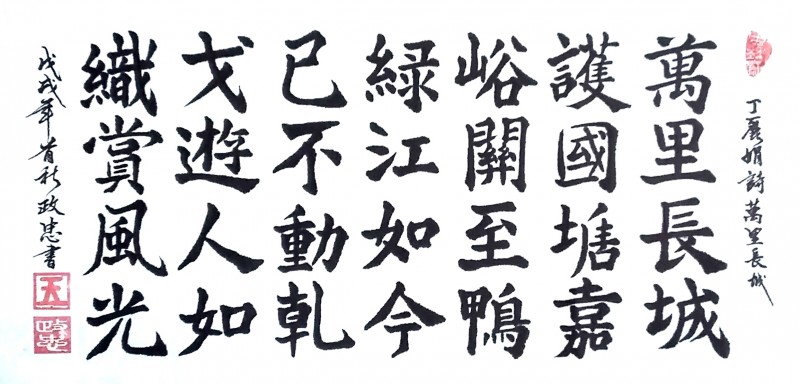 丁麗娟詩萬里長城
萬里長城
護國塘嘉
峪關至鴨
綠江如今
已不動乹
戈遊人如
織賞風光
戊戌年首秋政忠書
政忠